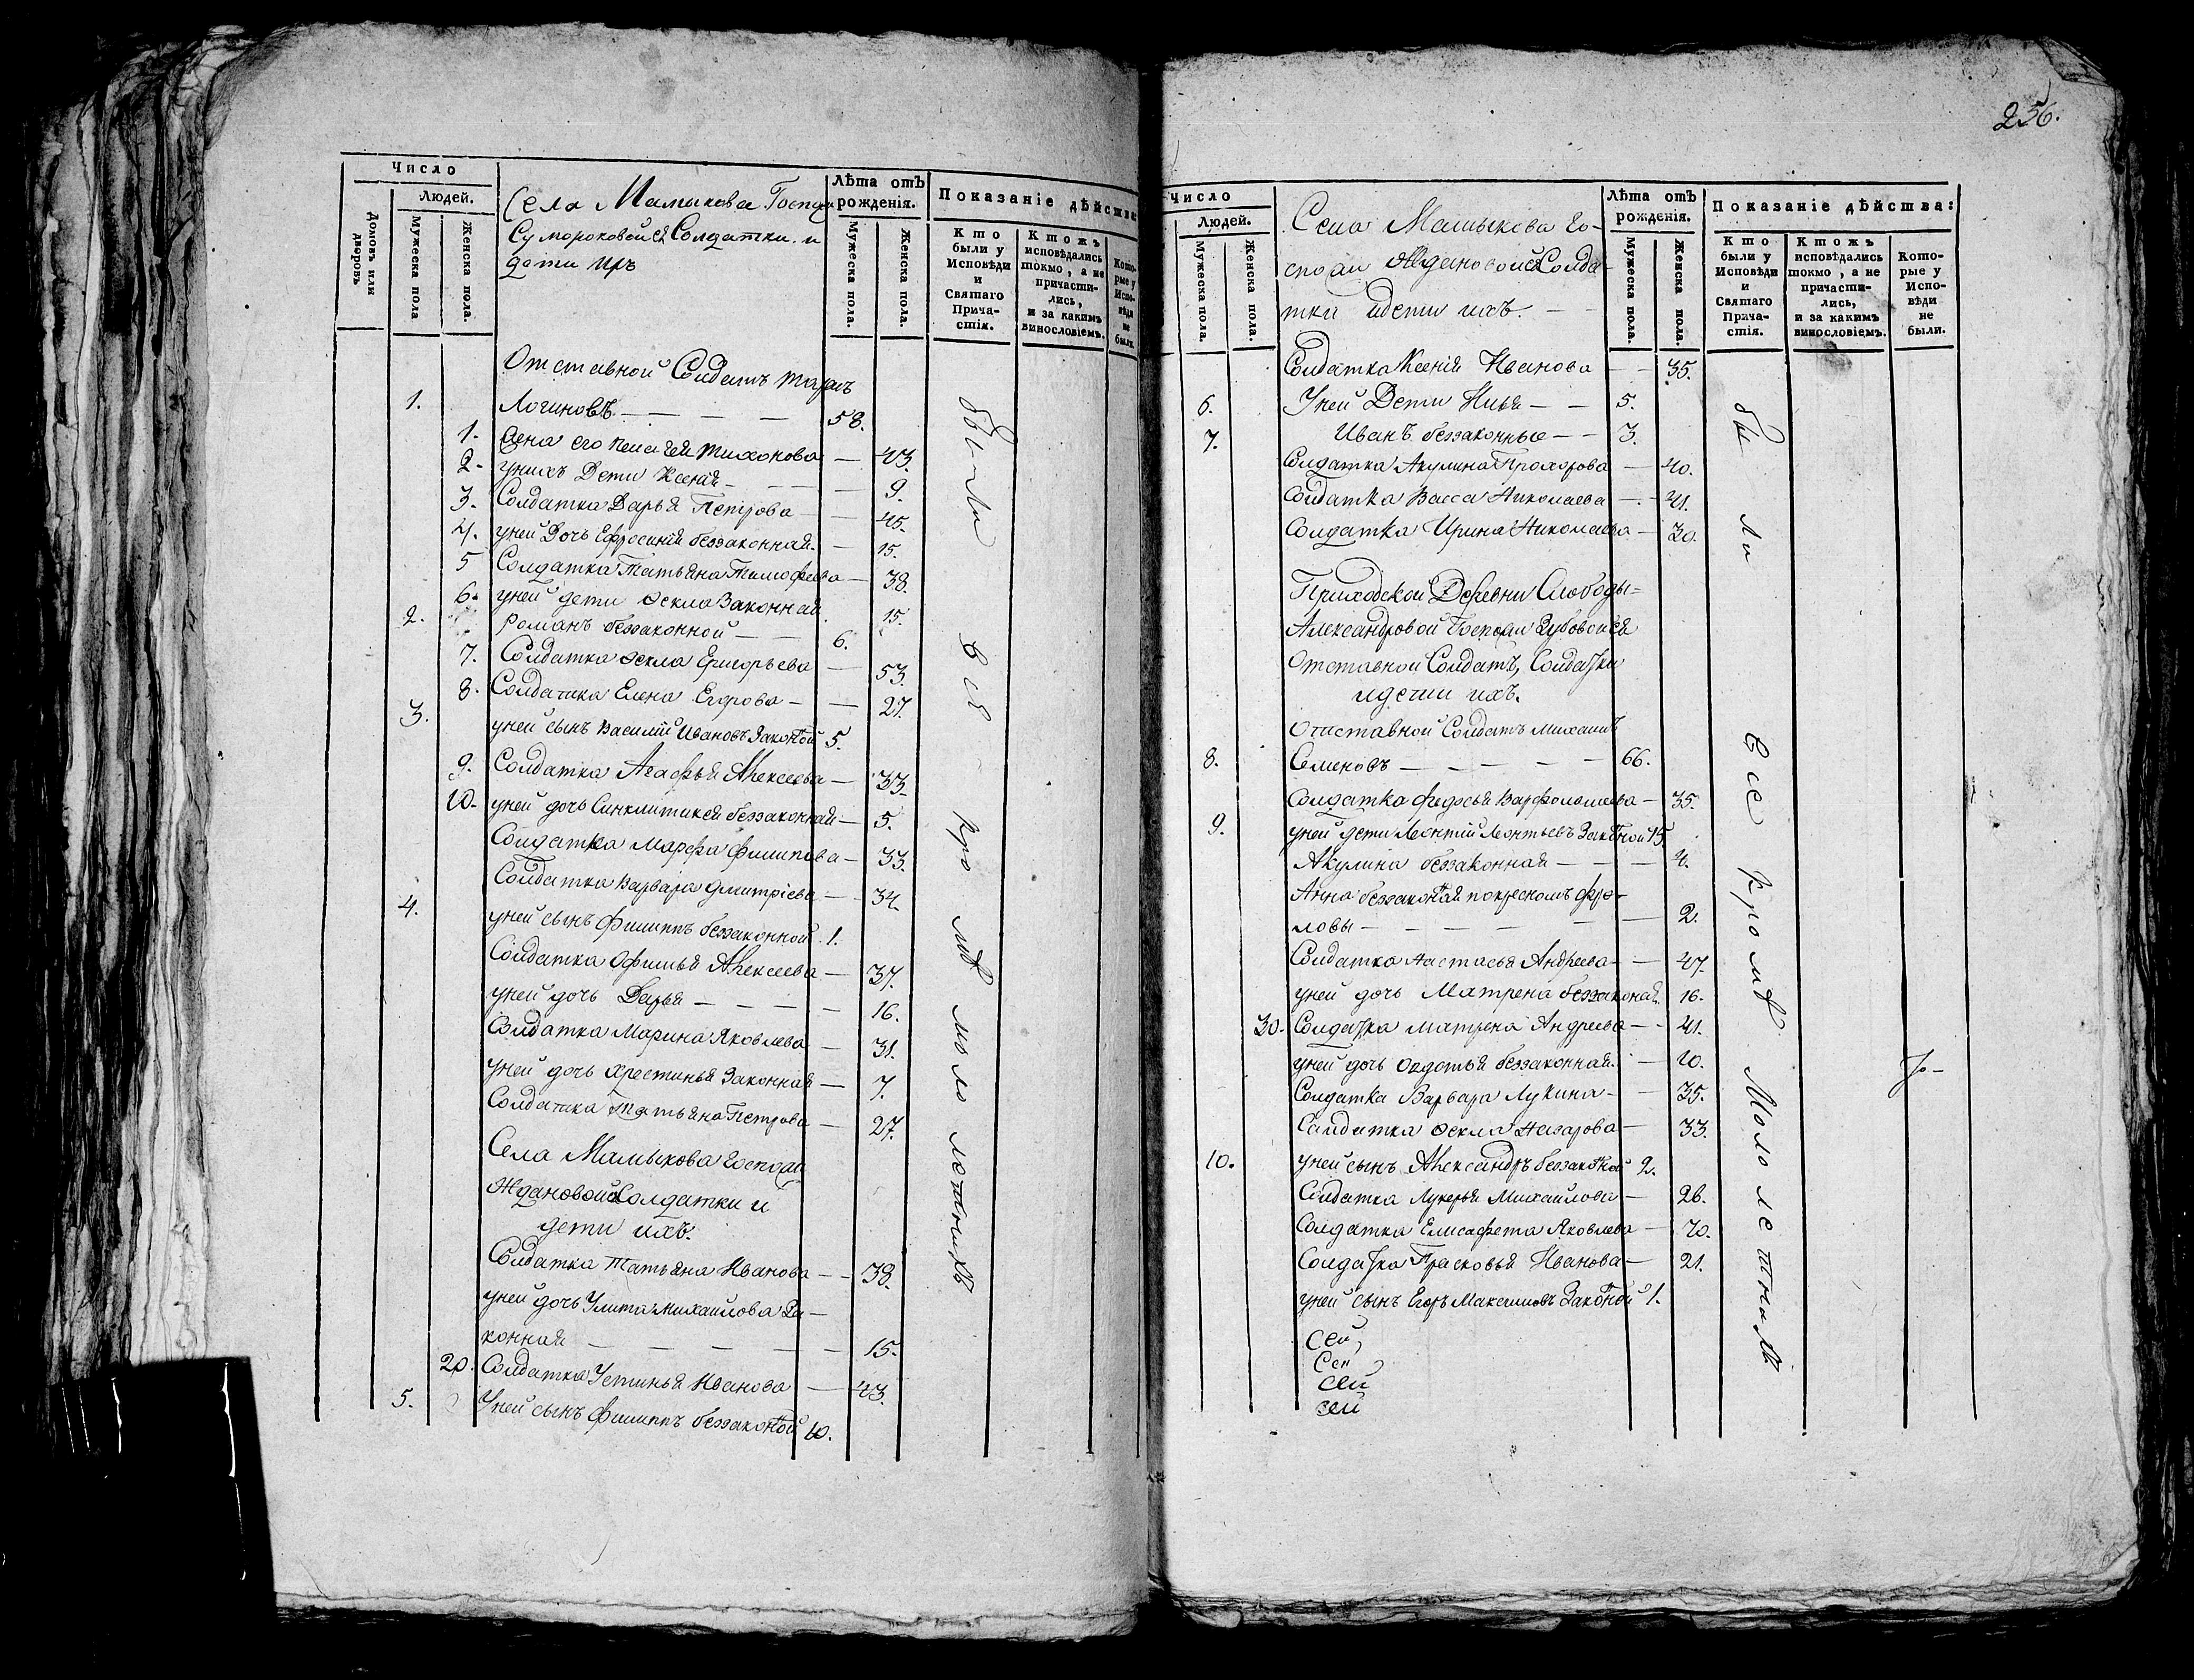 Число
Людей.
Домовъ или дворовъ
Мужеска пола
Женска пола.
Села Мамыкова Госпожи
Сумороковой Солдатки и
дети ихъ
Лѣта отъ рожденія.
Мужеска пола.
Женска пола.
Показаніе дѣйства
Кто были у Исповѣди и Святаго Причастія.
Ктожъ исповѣдались токмо, а не причастились, и за какимъ винословіемъ.
Которые у Исповѣди не были.
Отставной Солдатъ Тарасъ
1. Логиновъ 58.
1. Жена его Пелагея Тихонова 43
2. уних Дети Ксения 9.
3. Солдатка Дарья Петрова 45.
4. уней Дочь Ефросиния беззаконная 15.
5 Солдатка Татьяна Тимофеева 38.
6. уней дети Фекла Законная 15.
2. Романъ беззаконной 6.
7. Солдатка Фекла Григорьева 53.
8. Солдатка Елена Егорова 27.
3. уней сынъ Василий Ивановъ Законой 5.
9. Солдатка Агафья Алексеева 33.
10. уней дочь Синклитикея беззаконная 5.
Солдатка Марфа Филипова 33.
Солдатка Варвара Дмитриева 34.
4. уней сынъ Филиппъ беззаконной 1.
Солдатка Офимья Алексеева 37.
уней дочь Дарья 16.
Солдатка Марина Яковлева 31.
уней дочь Хрестинья Законная 7.
Солдатка Татьяна Петрова 27.
Села Мамыкова Госпожи
Ждановой Солдатки и
дети ихъ.
Солдатка Татьяна Иванова 38.
уней дочь Улита Михаилова За-
конная 15.
20. Солдатка Устинья Иванова 43.
5. Уней сынъ Филиппъ беззаконой 10.
были
все
кроме
мололетнихъ
256.
Число
Людей.
Мужеска пола.
Женска пола.
Села Мамыкова Го-
спожи Ждановой Солда-
тки идети ихъ.
Лѣта отъ рожденія.
Мужеска пола.
Женска пола.
Показаніе дѣйства:
Кто были у Исповѣди и Святаго Причастія.
Ктожъ исповѣдались токмо, а не причастились, и за какимъ винословіемъ.
Которые у Исповѣди не были.
Солдатка Ксения Иванова 35.
6. Уней Дети Илья 5.
7. Иванъ беззаконные 3.
Солдатка Акулина Прохорова 40.
Солдатка Васса Николаева 41.
Солдатка Ирина Николаева 30.
Приходской Деревни Слободы
Александровой Госпожи Зубовой
Отставной Солдатъ, Солдатки
идети ихъ.
Отставной Солдатъ Михаилъ
8. Семеновъ 66.
Солдатка Федосья Варфоломеева 35.
9. уней дети Леонтий Леонтьевъ Законой 15.
Акулина беззаконная 4.
Анна беззаконая покресномъ Фро-
ловы 2.
Солдатка Настасья Андреева 47.
уней дочь Матрена беззаконая 16.
30. Солдатка Матрена Андреева 41.
уней дочь Овдотья беззаконная 10.
Солдатка Варвара Лукина 35.
Салдатка Фекла Назарова 33.
10. уней сынъ Александръ беззаконой 2.
Солдатка Лукерья Михаилова 26.
Солдатка Елисафета Яковлева 70.
Солдатка Прасковья Иванова 21.
уней сынъ Егоръ Максимовъ Законой 1.
Сей
Сей
сей
сей
были
все
кроме
Мололетнихъ